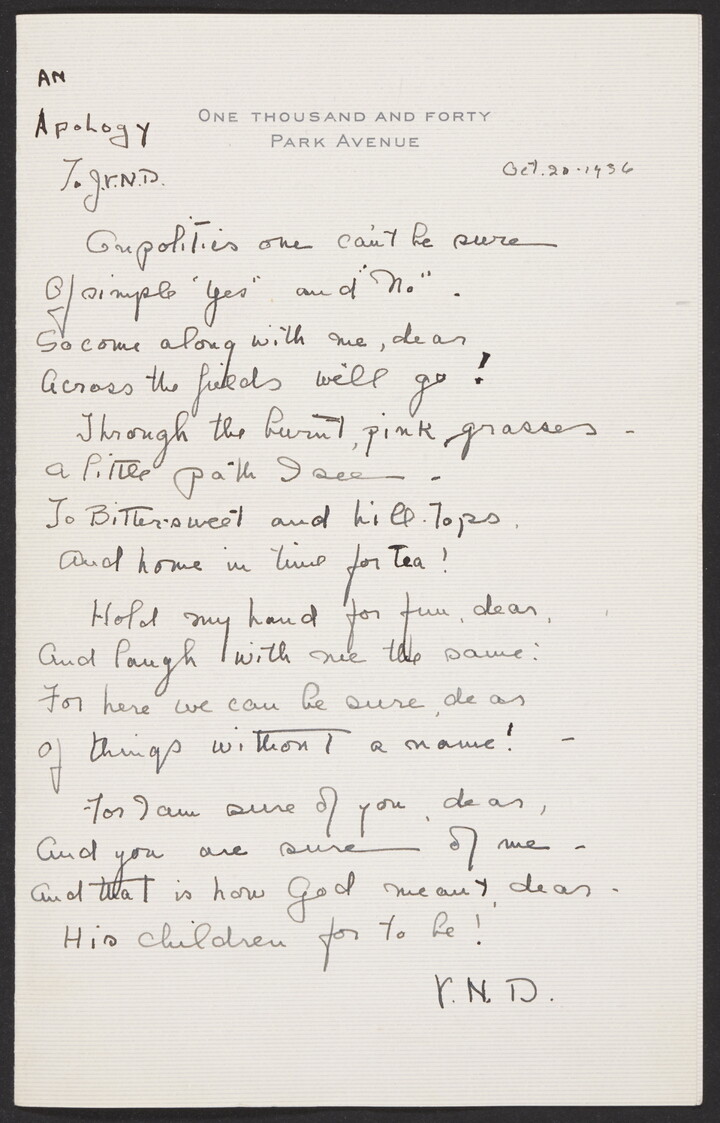 AN
Apology
ONE THOUSAND AND FORTY
PARK AVENUE
To J.V.N.D.
Oct. 20 - 1936
On politics one can't be sure
Of simple "yes" and "No".
So come along with me, dear
Across the fields we'll go!
Through the burnt, pink, grasses -
A little path I see - .
To Bitter-sweet and hill-tops,
And home in time for tea!
Hold my hand for fun, dear,
And laugh with me the same:
For here we can be sure, dear
Of things without a name! -
For I am sure of you, dear,
And you are sure of me -
And that is how God meant, dear -
His children for to be!
V.N.D.